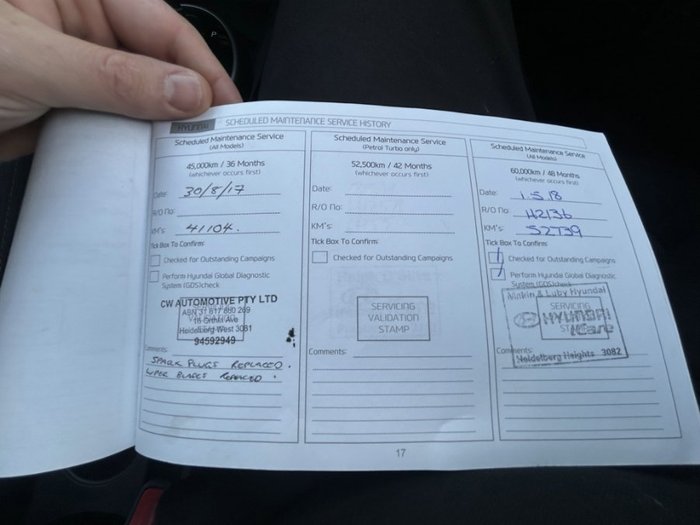 P
HYUNDAI SCHEDULED MAINTENANCE SERVICE HISTORY
Scheduled Maintenance Service
(All Models)
45,000km / 36 Months
(whichever occurs first)
Date: 30/8/17
R/O No:
KM's: 41104.
Tick Box To Confirm:
Checked for Outstanding Campaigns
Perform Hyundai Global Diagnostic
System (GDS)check
CW AUTOMOTIVE PTY LTD
ABN 31 617 890 269
Heidelberg West 3081
94592949
Comments:
SPARK PLUGS REPLACED.
WIPER BLADES REPLACED.
Scheduled Maintenance Service
(Petrol Turbo only)
52,500km / 42 Months
(whichever occurs first)
Date:
R/O No:
KM's:
Tick Box To Confirm:
Checked for Outstanding Campaigns
SERVICING
VALIDATION
STAMP
Comments:
Scheduled Maintenance Service
(All Models)
60,000km / 48 Months
(whichever occurs first)
Date: 1.5.18
R/O No: 112136
KM's: 52739
Tick Box To Confirm:
Checked for Outstanding Campaigns
Perform Hyundai Global Diagnostic
System (GDS)check
& Luby Hyundai
SERVICING
HYUNDAI
iCare
STAMP
Comments:
Heidelberg Heights 3082
17